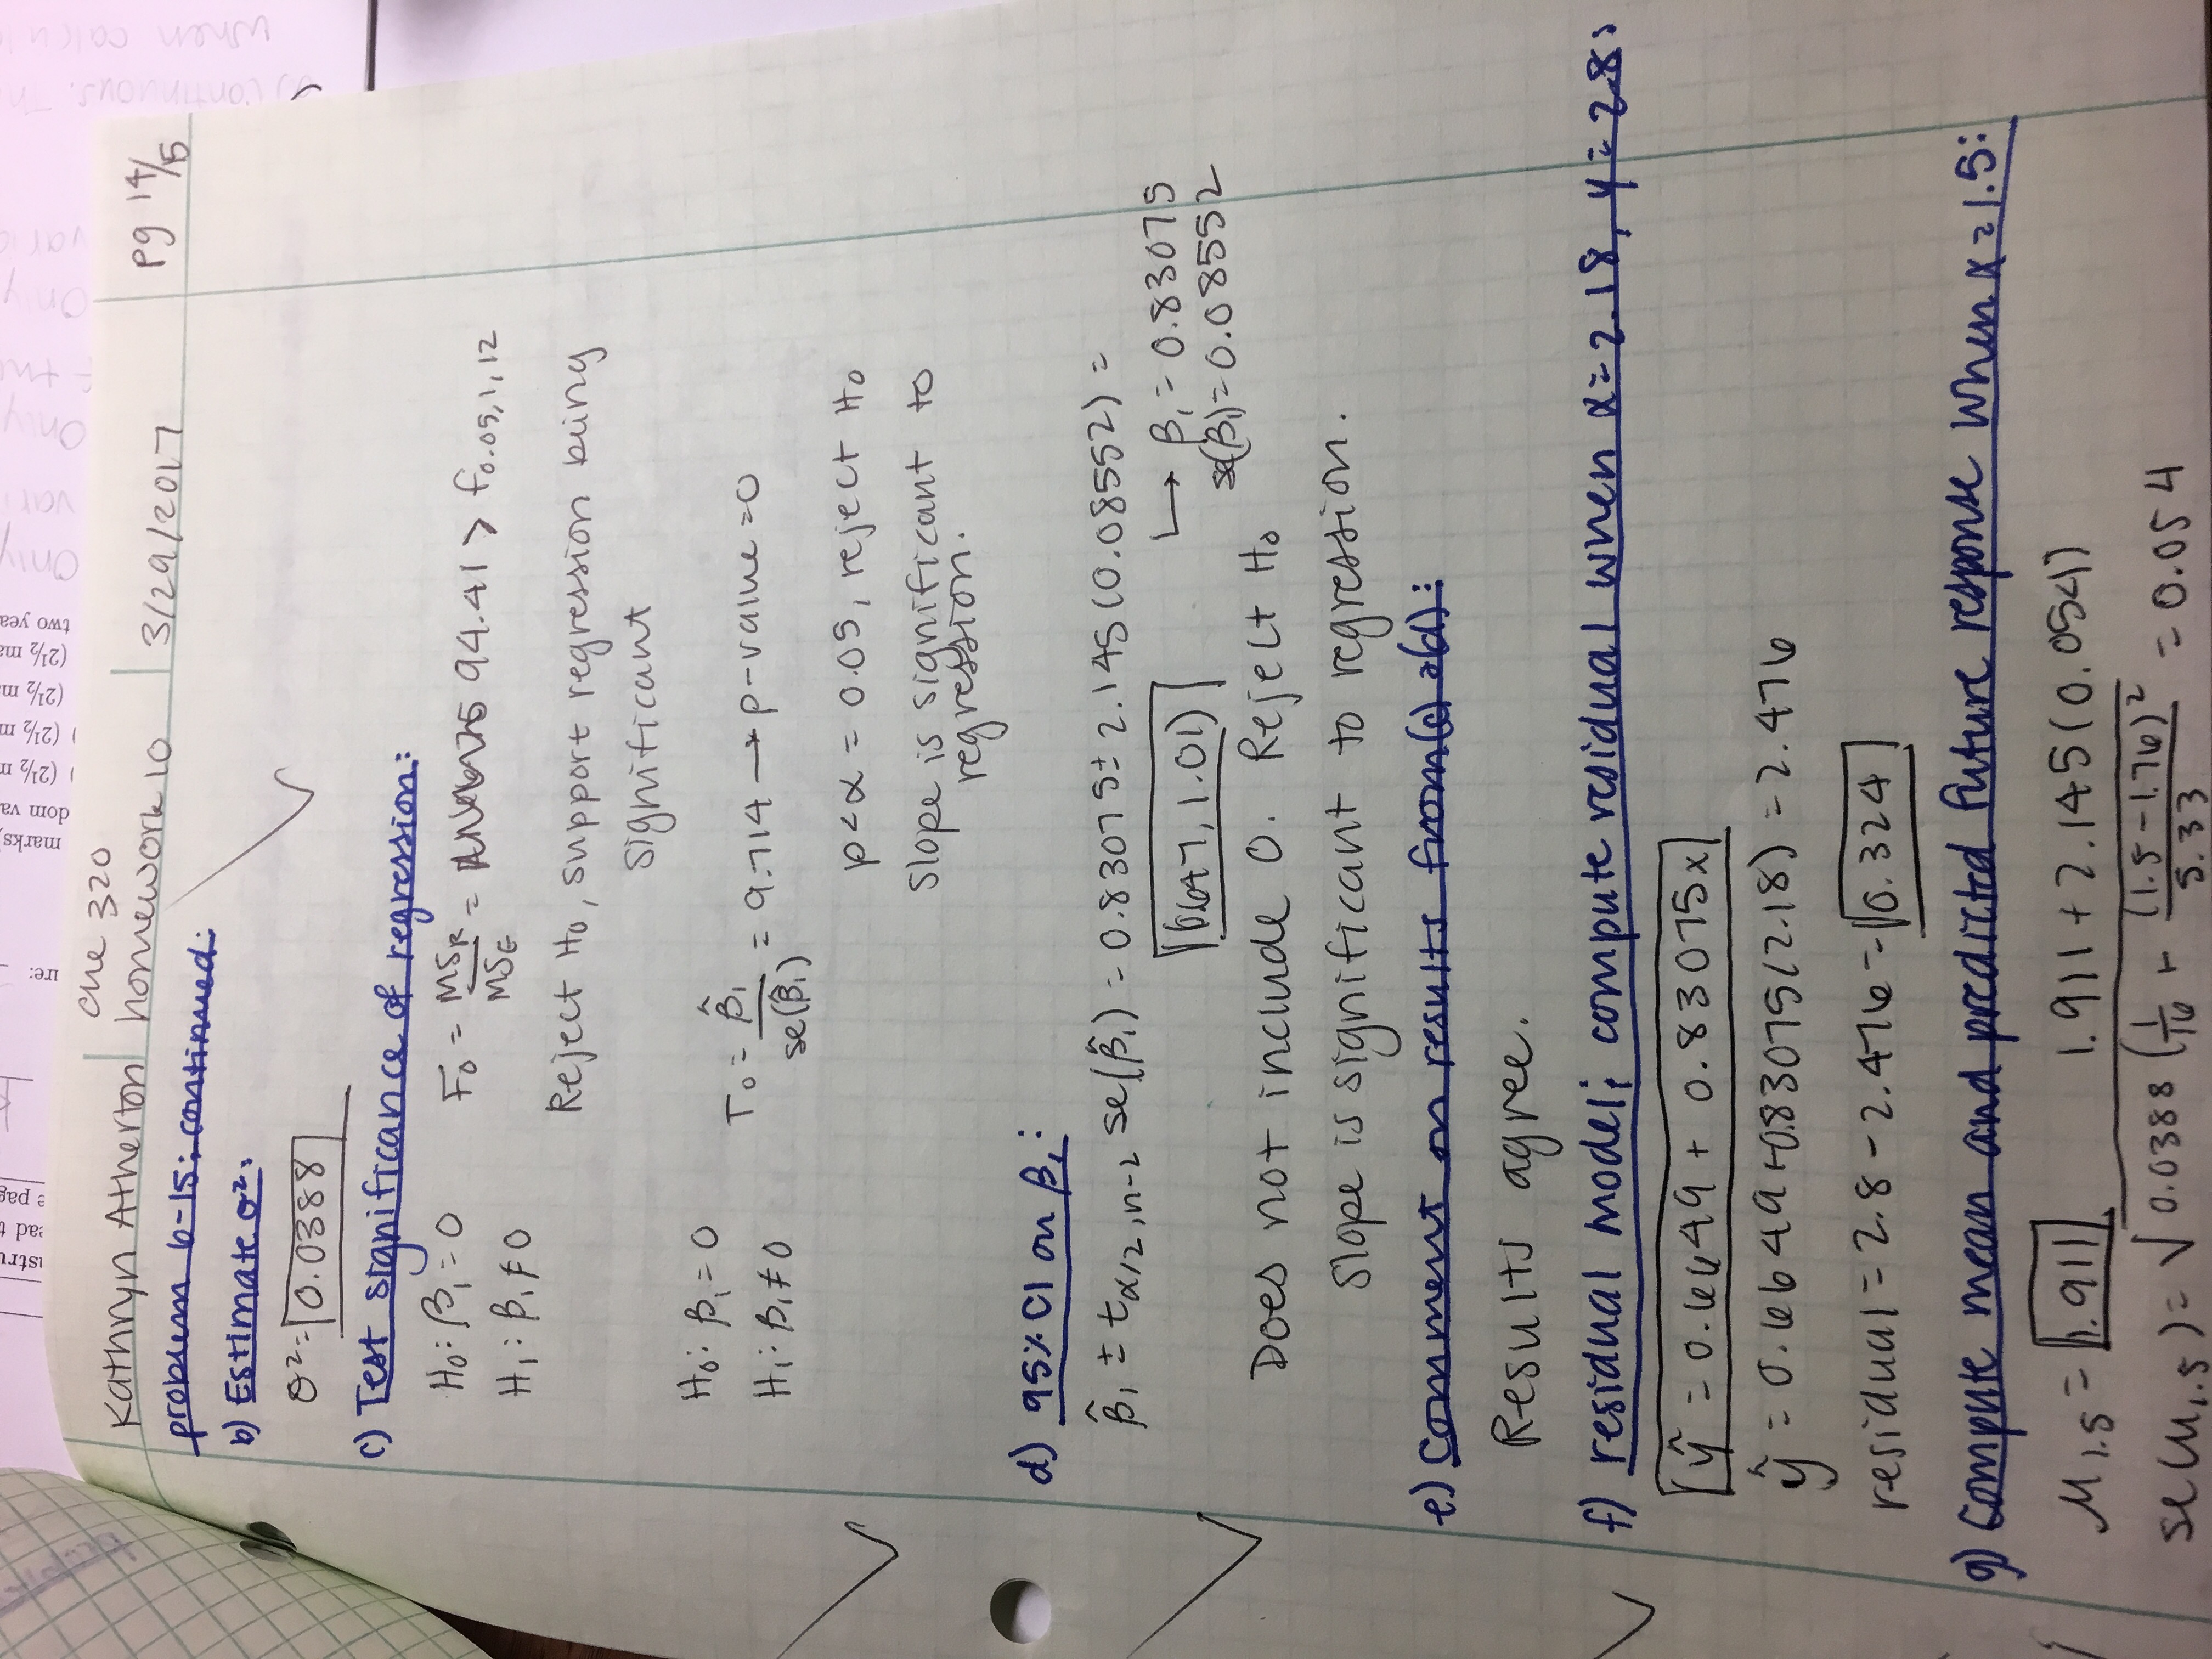 istru
ead t
e pag
ure:
marks
dom va
(2½ m
(2½ m
(2½ m
(2½ ma
two yea
Only
var
Only
Only
var
continuous. Th
when calcul
Kathryn Atherton
che 320
homework 10
3/29/2017
pg 14/15
problem 6-15: continued:
b) Estimate σ²:
σ² = 0.0388
c) Test significance of regression:
H₀: β₁ = 0
F₀ = MS_R / MS_E = 94.41 > f₀.₀₅,₁,₁₂
H₁: β₁ ≠ 0
Reject H₀, support regression being
significant
H₀: β₁ = 0
T₀ = β̂₁ / se(β̂₁) = 9.714 → p-value = 0
H₁: β₁ ≠ 0
p < α = 0.05, reject H₀
slope is significant to
regression.
d) 95% CI on β₁:
β̂₁ ± t_α/2,n-2 se(β̂₁) = 0.83075 ± 2.145(0.08552) =
(0.647, 1.01)
↳ β₁ = 0.83075
se(β̂₁) = 0.08552
Does not include 0. Reject H₀
slope is significant to regression.
e) Comment on results from (c) & (d):
Results agree.
f) residual model; compute residual when x = 2.18, y = 2.8:
ŷ = 0.6649 + 0.83075x
ŷ = 0.6649 + 0.83075(2.18) = 2.476
residual = 2.8 - 2.476 = 0.324
g) Compute mean and predicted future response when x = 1.5:
μ₁.₅ = 1.911
1.911 + 2.145(0.054)
se(μ₁.₅) = √0.0388 (1/16 + (1.5 - 1.76)² / 5.33 = 0.054